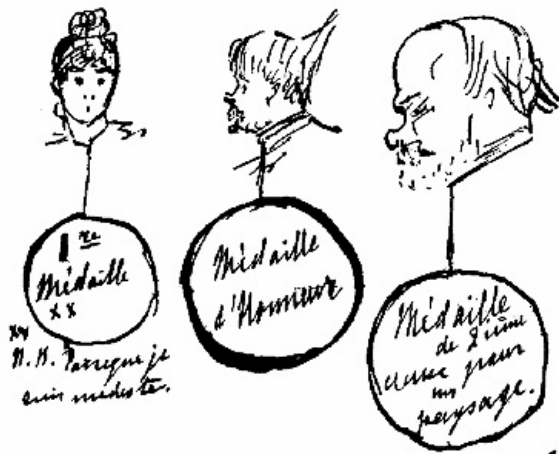 1re
Médaille
xx
xx
N. B. Parceque je
suis modeste.
Médaille
d'Honneur
Médaille
de 2ième
classe pour
un
paysage.